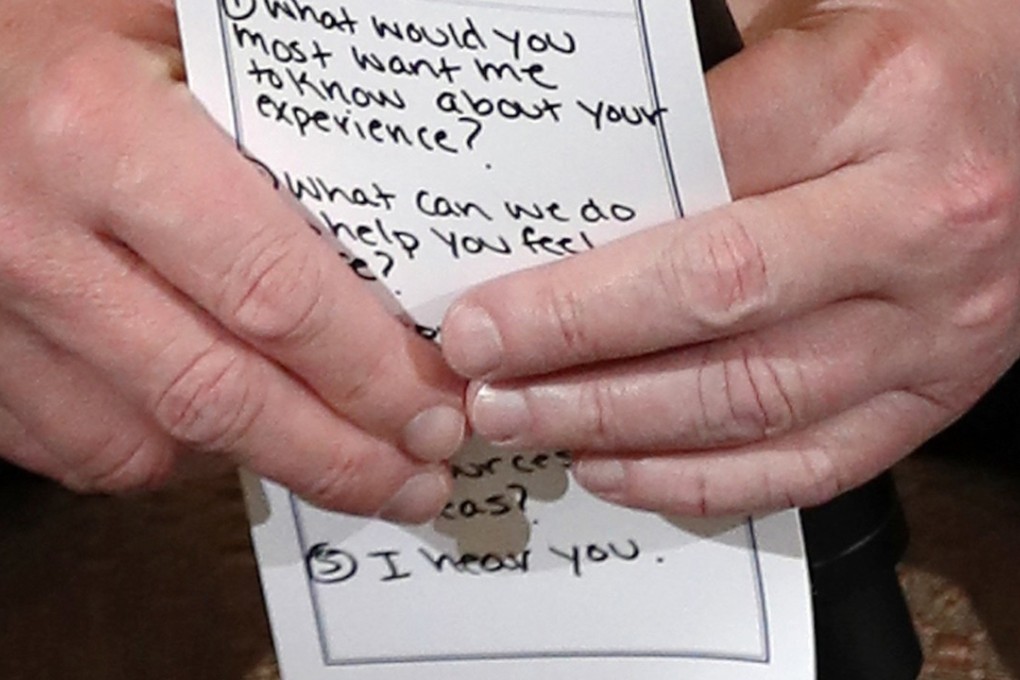 ① What would you
most want me
to know about your
experience?
What can we do
help you feel
e?
urces
eas?
⑤ I hear you.